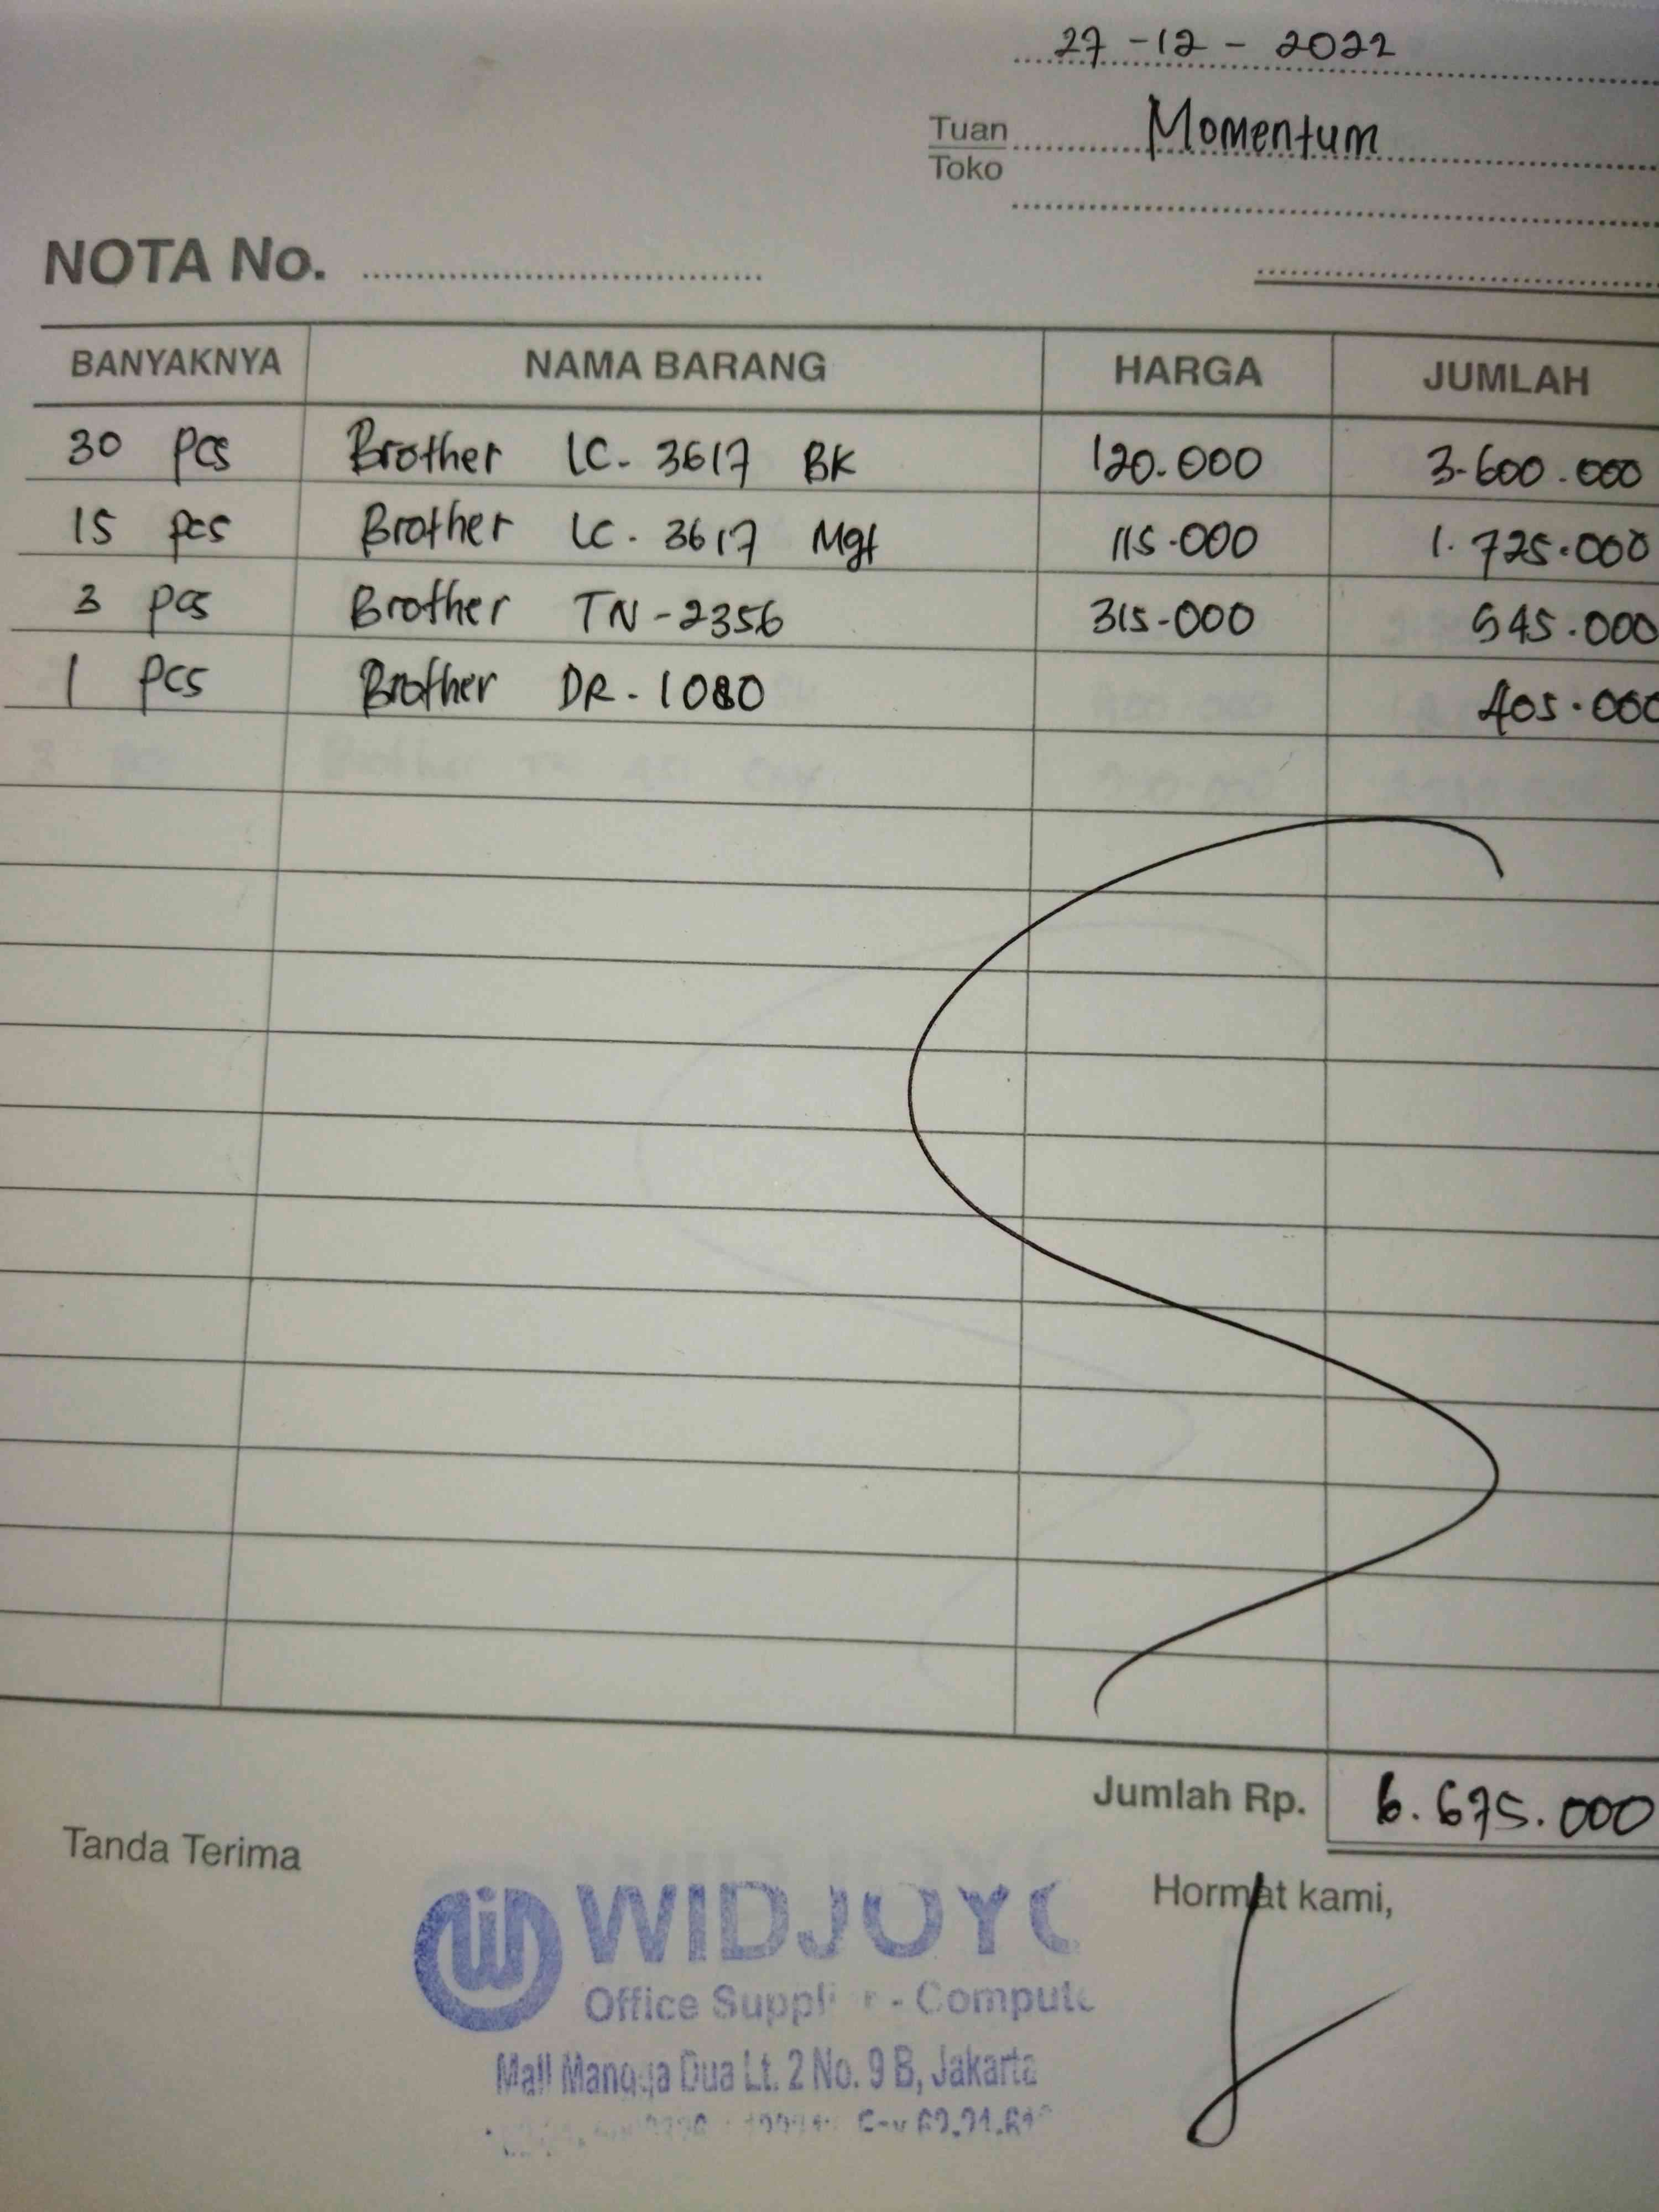 27-12-2022
Tuan Momentum
Toko
NOTA No.
BANYAKNYA NAMA BARANG HARGA JUMLAH
30 pcs Brother LC-3617 BK 120.000 3.600.000
15 pcs Brother LC-3617 Mgt 115.000 1.725.000
3 pcs Brother TN-2356 315.000 945.000
1 pcs Brother DR-1080 405.000
Jumlah Rp. 6.675.000
Tanda Terima
Hormat kami,
WIDJOYO
Office Supplier - Compute
Mall Mangga Dua Lt. 2 No. 9 B, Jakarta